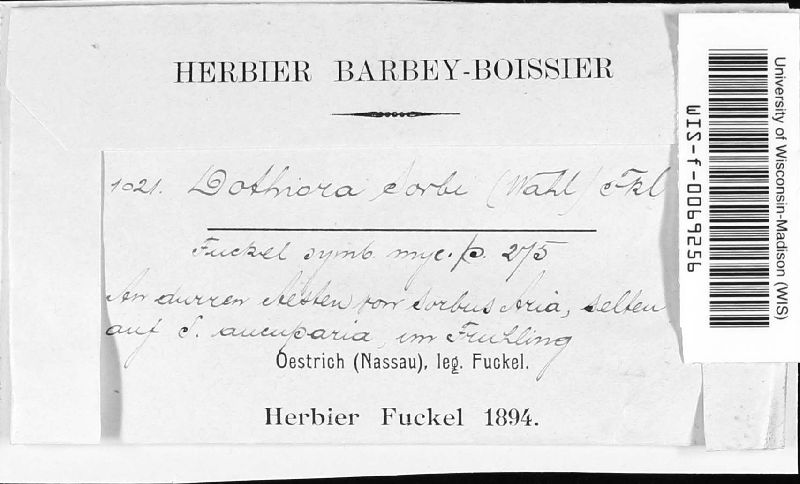 HERBIER BARBEY-BOISSIER
1021. Dothiora Sorbi (Wahl) Fkl
Fuckel symb. myc. p. 275
An durren Aesten von Sorbus Aria, selten
auf S. aucuparia, im Fruhling
Oestrich (Nassau), leg. Fuckel.
Herbier Fuckel 1894.
University of Wisconsin-Madison (WIS)
WIS-f-0069256